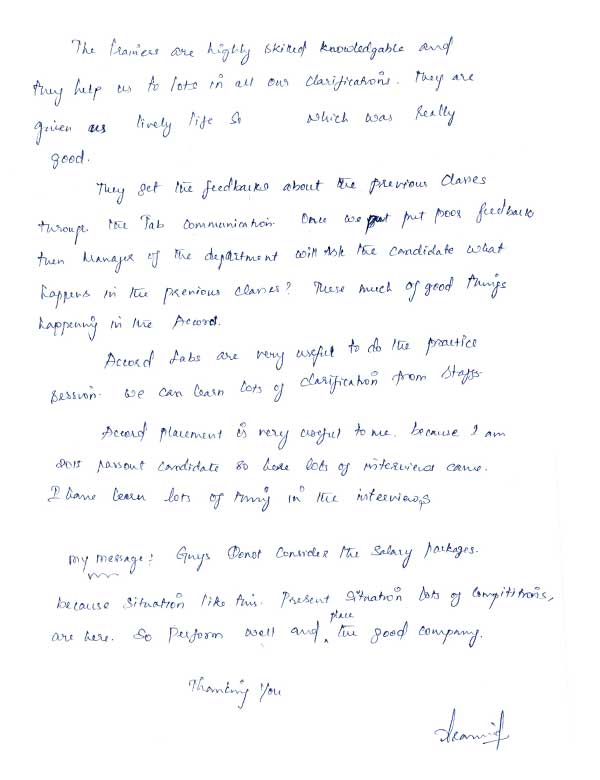 The trainers are highly skilled knowledgable and
they help us to lots in all our clarifications. they are
given us lively life so which was really
good.
They get the feedbacks about the previous classes
through the Tab communication. Once we put poor feedback
then Manager of the department will ask the candidate what
happens in the previous classes? These much of good things
happening in the Accord.
Accord Labs are very useful to do the practice
session. we can learn lots of clarification from staffs.
Accord placement is very useful to me. because I am
2015 passout candidate so here lots of interviews came.
I have learn lots of thing in the interviews
my message: Guys Donot Consider the Salary packages.
because situation like this. Present situation lots of compititions,
are here. So Perform well and place the good company.
Thanking You